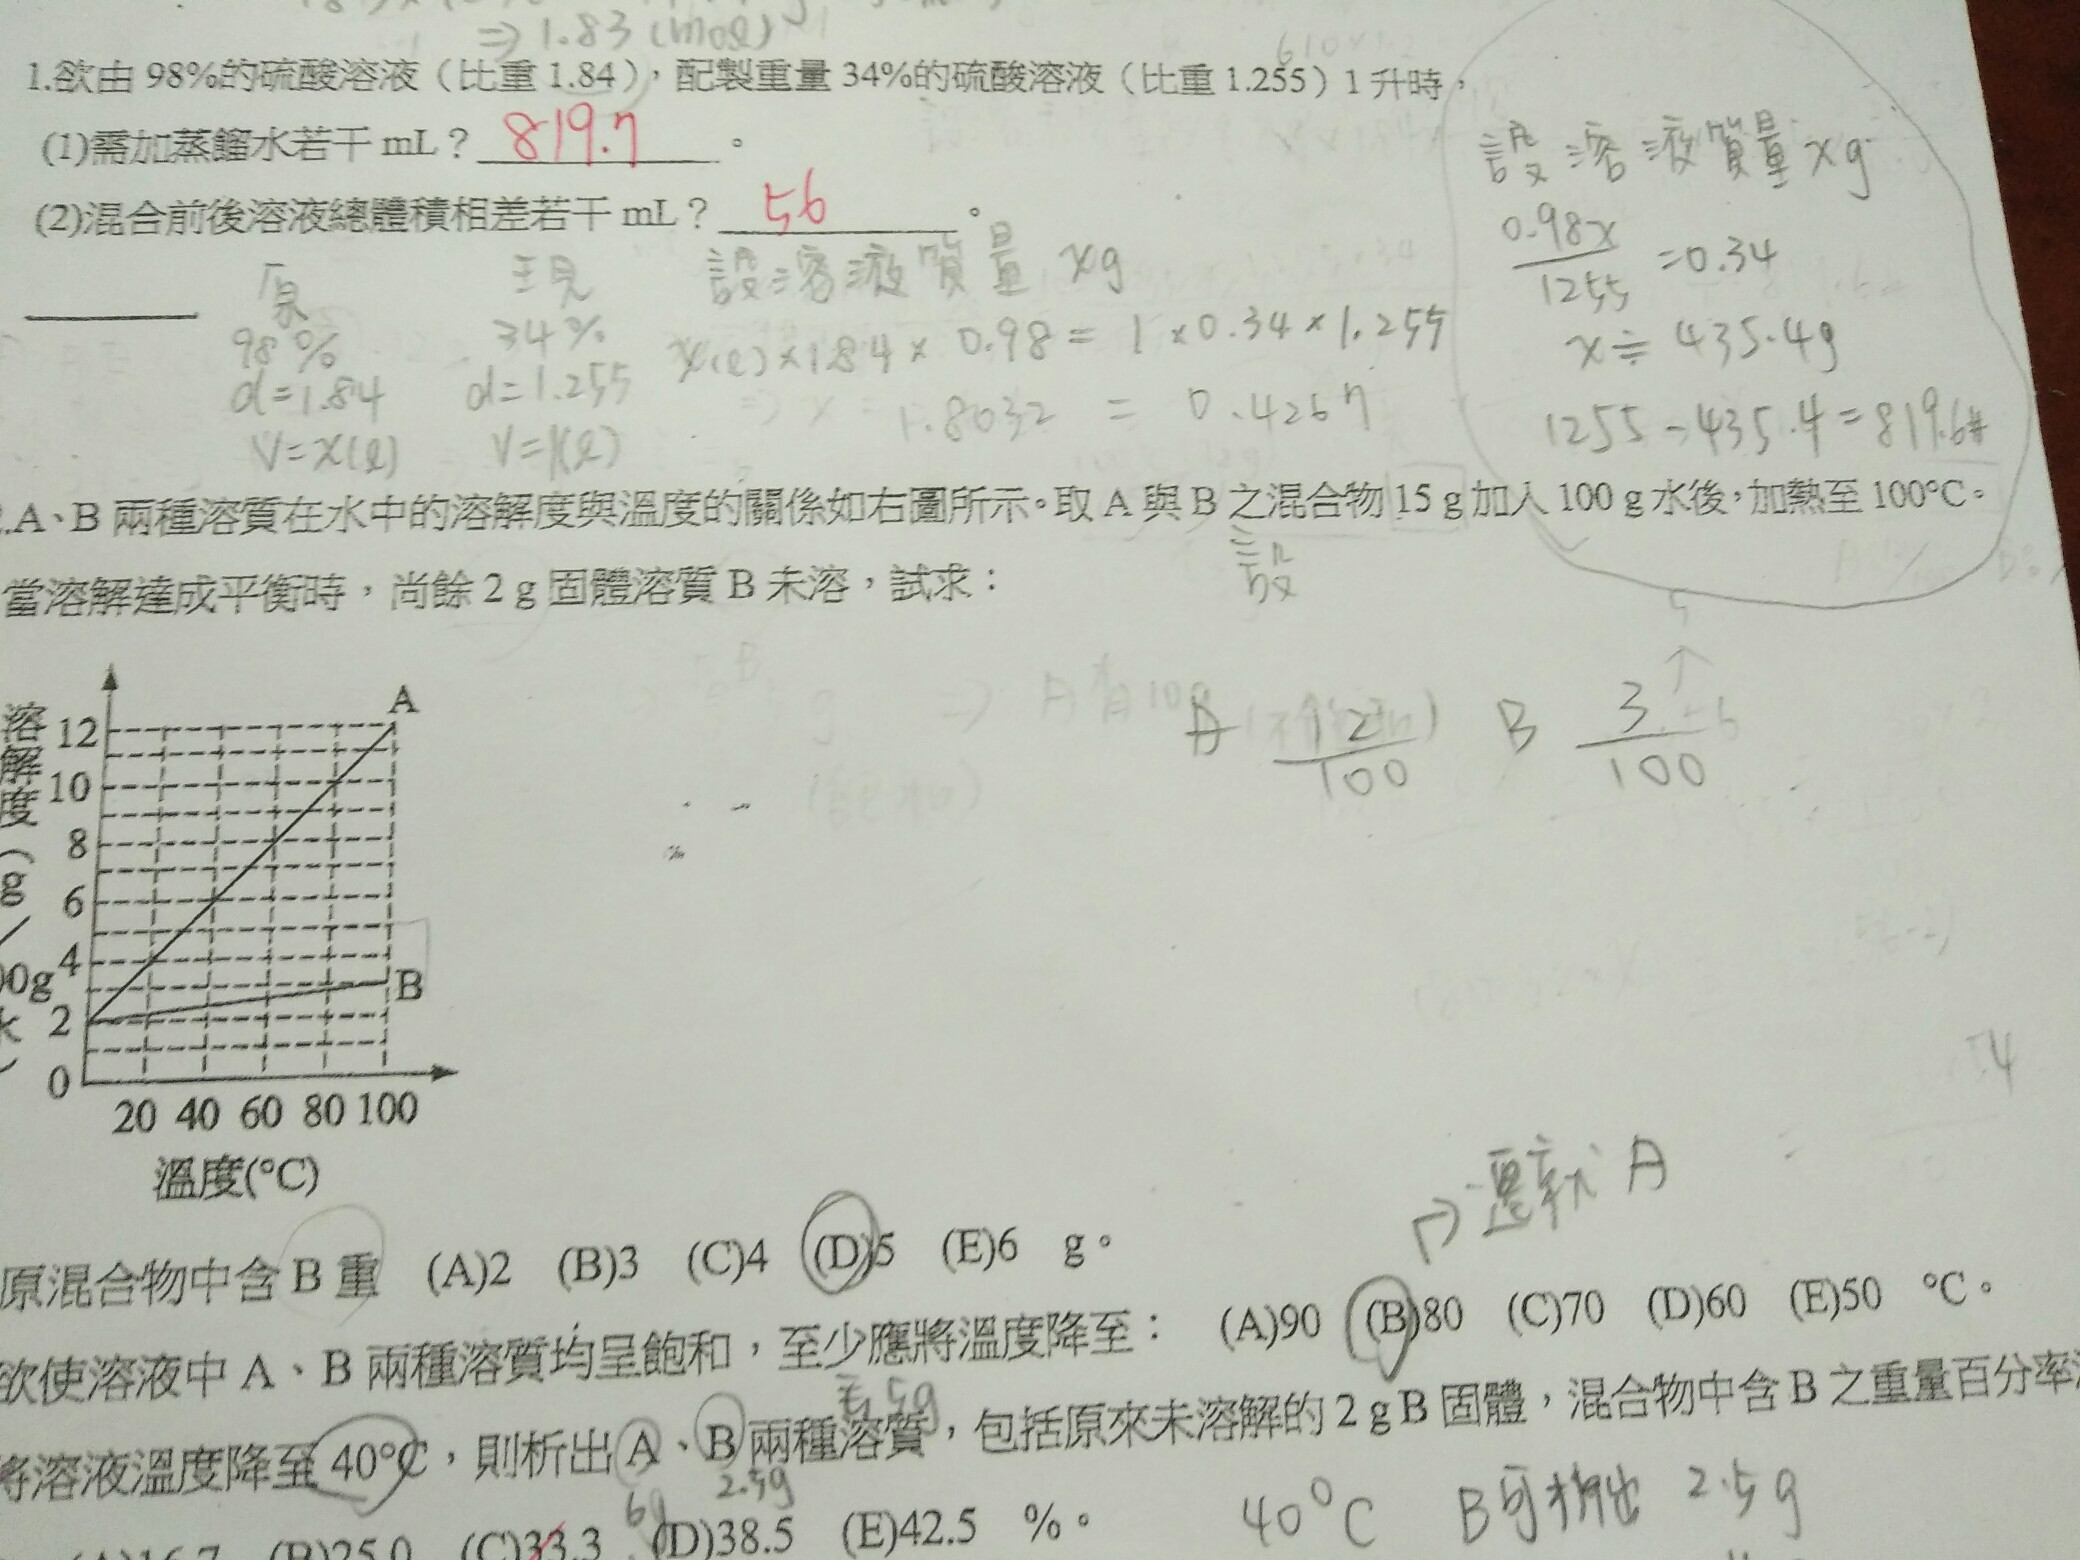 ⇒ 1.83 (mol)
1.欲由 98%的硫酸溶液（比重 1.84），配製重量 34%的硫酸溶液（比重 1.255）1 升時，
(1)需加蒸餾水若干 mL？ 819.7 。
(2)混合前後溶液總體積相差若干 mL？ 56 。
設溶液質量 xg
0.98x
1255
=0.34
x≒435.4g
1255-435.4=819.6#
原 現 設溶液質量 xg
98% 34% x(l)×1.84×0.98=1×0.34×1.255
d=1.84 d=1.255 ⇒ x = 1.8032 = 0.4267
V=x(l) V=1(l)
.A、B 兩種溶質在水中的溶解度與溫度的關係如右圖所示。取 A 與 B 之混合物 15 g 加入 100 g 水後，加熱至 100℃。
設
當溶解達成平衡時，尚餘 2 g 固體溶質 B 未溶，試求：
A 12 B 3
100 100
溶解度（g
00g
水
12
10
8
6
4
2
0
A
B
20 40 60 80 100
溫度(℃)
⇒遷就 A
原混合物中含 B 重 (A)2 (B)3 (C)4 (D)5 (E)6 g。
欲使溶液中 A、B 兩種溶質均呈飽和，至少應將溫度降至： (A)90 (B)80 (C)70 (D)60 (E)50 ℃。
5g
將溶液溫度降至 40℃，則析出 A、B 兩種溶質，包括原來未溶解的 2 g B 固體，混合物中含 B 之重量百分率
6g 2.5g
(A)16.7 (B)25.0 (C)33.3 (D)38.5 (E)42.5 %。
40℃ B可析出 2.5g